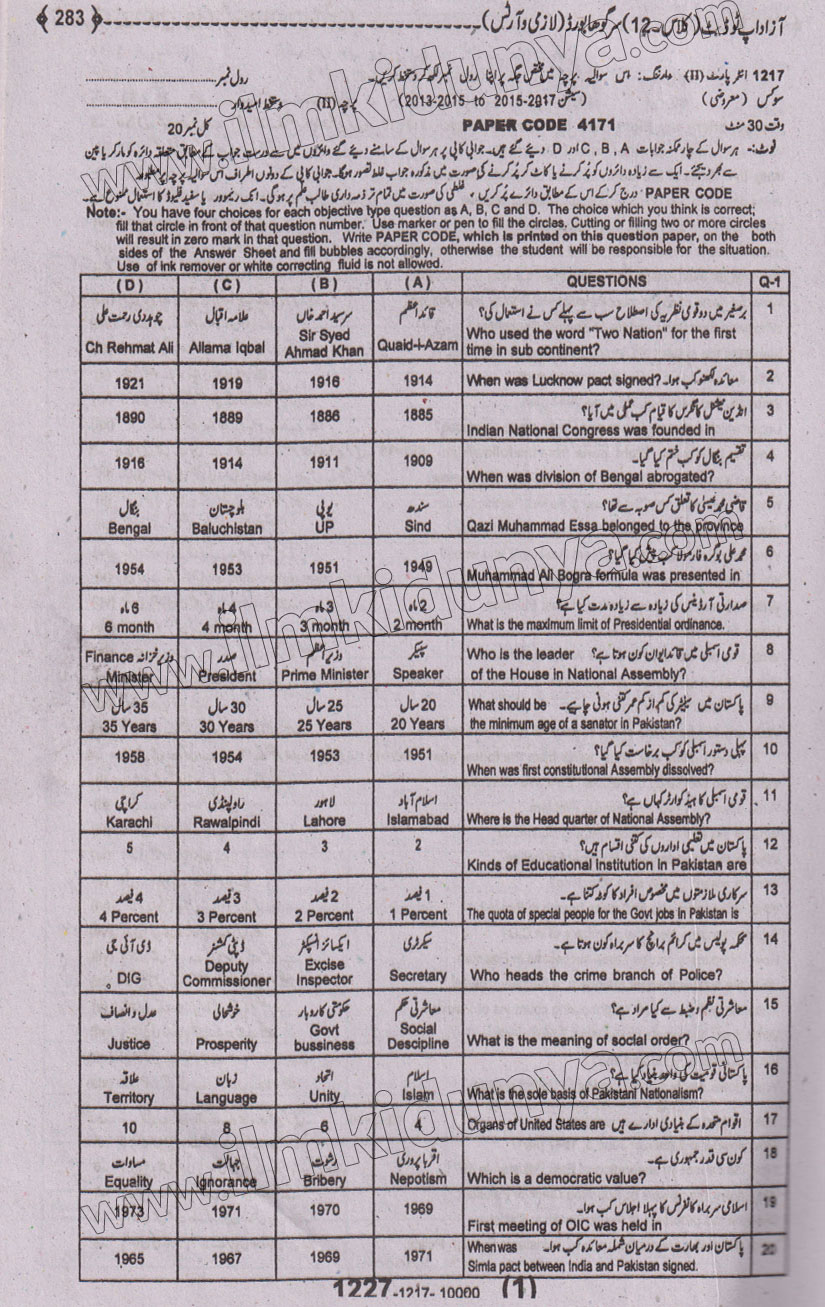 آزاد اپ ٹو ڈیٹ (کلاس-12) سرگودھا بورڈ (لازمی و آرٹس) ﴿283﴾
1217 انٹر پارٹ (II) وارننگ:- اس سوالیہ پرچہ میں مختص جگہ پر اپنا رول نمبر لکھ کر دستخط کریں۔ رول نمبر
سوکس (معروضی) (سیشن 2013-2015 to 2015-2017) پرچہ (II) دستخط امیدوار
وقت 30 منٹ PAPER CODE 4171 کل نمبر 20
نوٹ:- ہر سوال کے چار ممکنہ جوابات C, B, A اور D دیئے گئے ہیں۔ جوابی کاپی پر ہر سوال کے سامنے دیئے گئے دائروں میں سے درست جواب کے مطابق متعلقہ دائرہ کو مارکر یا پین
سے بھر دیجئے۔ ایک سے زیادہ دائروں کو پُر کرنے یا کاٹ کر پُر کرنے کی صورت میں مذکورہ جواب غلط تصور ہوگا۔ جوابی کاپی کے دونوں اطراف اس سوالیہ پرچہ پر مطبوعہ
PAPER CODE درج کر کے اس کے مطابق دائرے پُر کریں، غلطی کی صورت میں تمام تر ذمہ داری طالب علم پر ہوگی۔ انک ریموور یا سفید فلیوڈ کا استعمال ممنوع ہے۔
Note:- You have four choices for each objective type question as A, B, C and D. The choice which you think is correct;
fill that circle in front of that question number. Use marker or pen to fill the circles. Cutting or filling two or more circles
will result in zero mark in that question. Write PAPER CODE, which is printed on this question paper, on the both
sides of the Answer Sheet and fill bubbles accordingly, otherwise the student will be responsible for the situation.
Use of ink remover or white correcting fluid is not allowed.
(D) (C) (B) (A) QUESTIONS Q-1
چوہدری رحمت علی علامہ اقبال سرسید احمد خاں قائداعظم برصغیر میں دو قومی نظریہ کی اصطلاح سب سے پہلے کس نے استعمال کی؟ 1
Ch Rehmat Ali Allama Iqbal Sir Syed Ahmad Khan Quaid-i-Azam Who used the word "Two Nation" for the first
time in sub continent?
1921 1919 1916 1914 When was Lucknow pact signed? معاہدہ لکھنو کب ہوا۔ 2
1890 1889 1886 1885 انڈین نیشنل کانگرس کا قیام کب عمل میں آیا؟ 3
Indian National Congress was founded in
1916 1914 1911 1909 تقسیم بنگال کو کب ختم کیا گیا۔ 4
When was division of Bengal abrogated?
بنگال بلوچستان یوپی سندھ قاضی محمد عیسیٰ کا تعلق کس صوبہ سے تھا؟ 5
Bengal Baluchistan UP Sind Qazi Muhammad Essa belonged to the province
1954 1953 1951 1949 محمد علی بوگرہ فارمولا کب پیش کیا گیا؟ 6
Muhammad Ali Bogra formula was presented in
6 ماہ 4 ماہ 3 ماہ 2 ماہ صدارتی آرڈیننس کی زیادہ سے زیادہ مدت کیا ہے؟ 7
6 month 4 month 3 month 2 month What is the maximum limit of Presidential ordinance.
Finance وزیر خزانہ صدر وزیراعظم سپیکر Who is the leader قومی اسمبلی میں قائد ایوان کون ہوتا ہے؟ 8
Minister President Prime Minister Speaker of the House in National Assembly?
35 سال 30 سال 25 سال 20 سال What should be پاکستان میں سینٹر کی کم از کم عمر کتنی ہونی چاہیے۔ 9
35 Years 30 Years 25 Years 20 Years the minimum age of a sanator in Pakistan?
1958 1954 1953 1951 پہلی دستور اسمبلی کو کب برخاست کیا گیا؟ 10
When was first constitutional Assembly dissolved?
کراچی راولپنڈی لاہور اسلام آباد قومی اسمبلی کا ہیڈ کوارٹر کہاں ہے؟ 11
Karachi Rawalpindi Lahore Islamabad Where is the Head quarter of National Assembly?
5 4 3 2 پاکستان میں تعلیمی اداروں کی کتنی اقسام ہیں؟ 12
Kinds of Educational Institution in Pakistan are
4 فیصد 3 فیصد 2 فیصد 1 فیصد سرکاری ملازمتوں میں مخصوص افراد کا کوٹہ کتنا ہے۔ 13
4 Percent 3 Percent 2 Percent 1 Percent The quota of special people for the Govt jobs in Pakistan is
ڈی آئی جی ڈپٹی کمشنر ایکسائز انسپکٹر سیکرٹری محکمہ پولیس میں کرائم برانچ کا سربراہ کون ہوتا ہے۔ 14
DIG Deputy Commissioner Excise Inspector Secretary Who heads the crime branch of Police?
عدل و انصاف خوشحالی حکومتی کاروبار معاشرتی حکم معاشرتی نظم و ضبط سے کیا مراد ہے؟ 15
Justice Prosperity Govt bussiness Social Descipline What is the meaning of social order?
علاقہ زبان اتحاد اسلام پاکستانی قومیت کی واحد بنیاد کیا ہے؟ 16
Territory Language Unity Islam What is the sole basis of Pakistani Nationalism?
10 8 6 4 Organs of United States are اقوام متحدہ کے بنیادی ادارے ہیں 17
مساوات جہالت رشوت اقربا پروری کون سی قدر جمہوری ہے۔ 18
Equality Ignorance Bribery Nepotism Which is a democratic value?
1973 1971 1970 1969 اسلامی سربراہ کانفرنس کا پہلا اجلاس کب ہوا۔ 19
First meeting of OIC was held in
1965 1967 1969 1971 When was پاکستان اور بھارت کے درمیان شملہ معاہدہ کب ہوا۔ 20
Simla pact between India and Pakistan signed.
1227-1217-10000 (1)
www.ilmkidunya.com
www.ilmkidunya.com
www.ilmkidunya.com